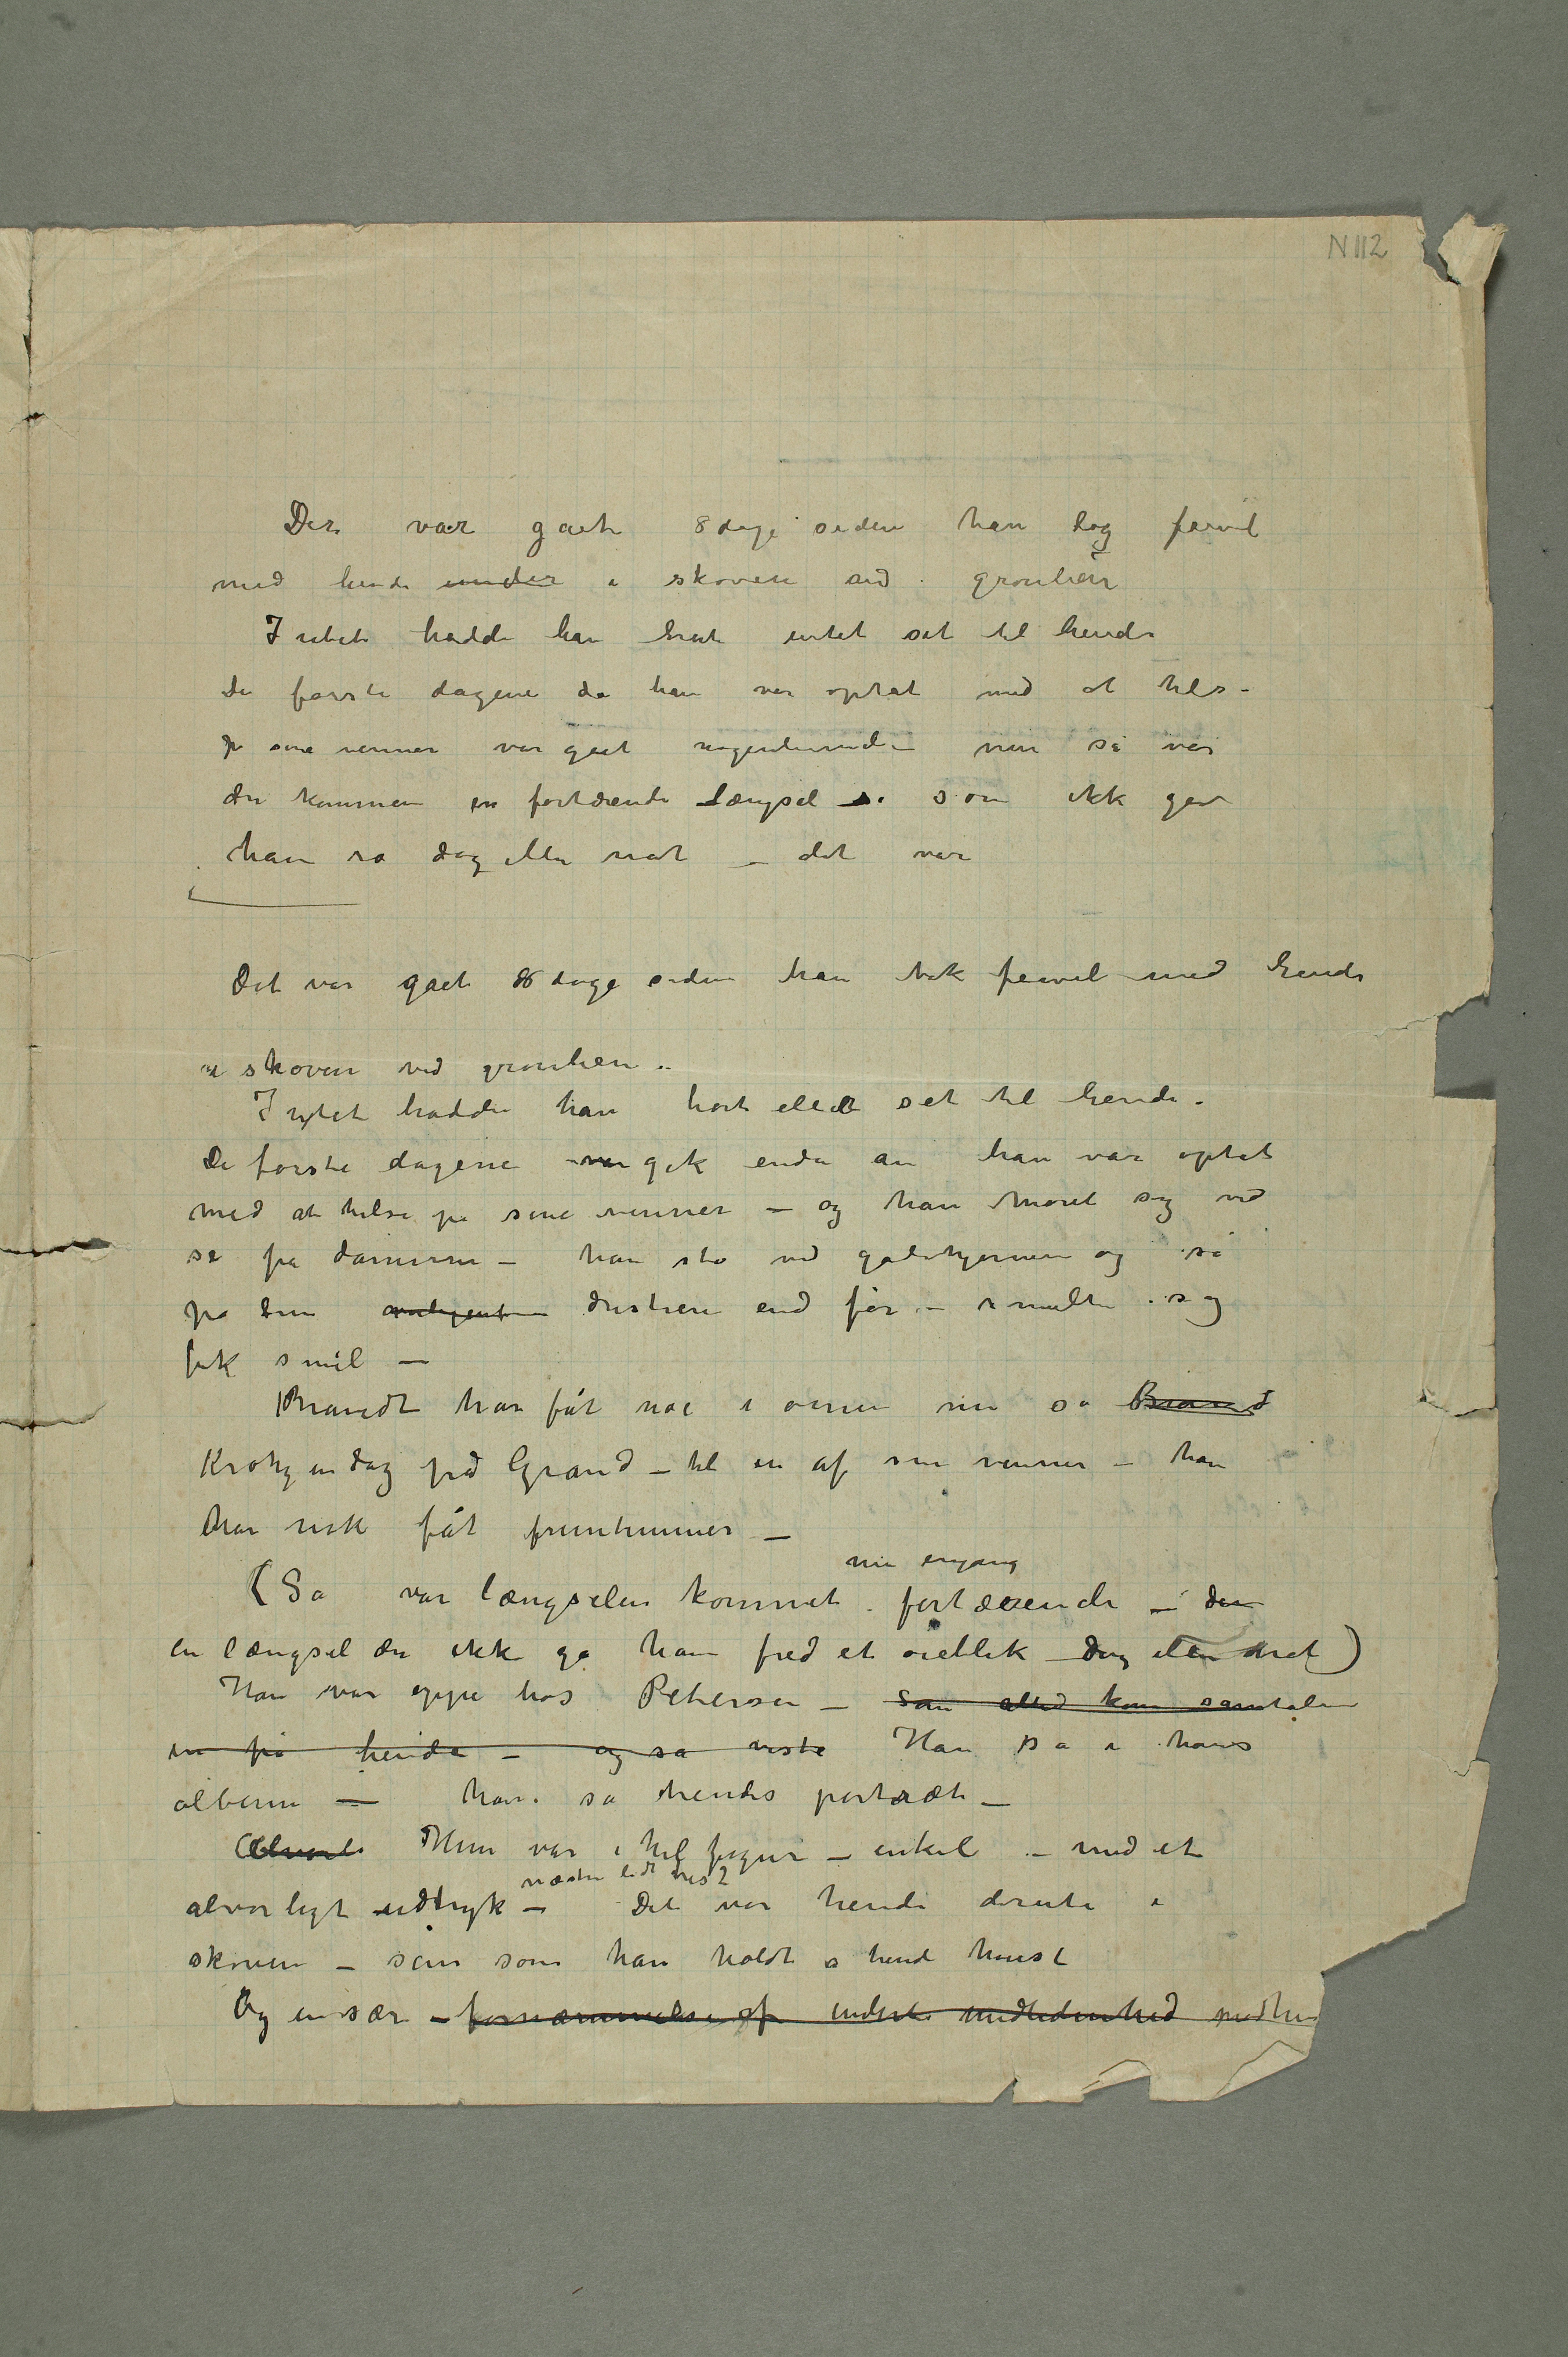 N 112
Der var gået 8 dage siden han tog farvel
med hende under i skoven ved grønlien
Intet hadde han hørt intet set til hende
De første dagene da han var optat med at hilse
på sine venner var gået nogenlunde men så var
der kommen en fortærende længsel så som ikke gav
ham ro dag eller nat – det var
Det var gået 8 dage siden han tok farvel med hende
i skoven ved grønlien.
Intet hadde han hørt eller set til hende.
De første dagene var gik enda an han var optat
med at hilse på sine venner – og han moret sig ved
se på damerne – han sto ved gadehjørnene og så
på dem dristigere end før – smilte og
fik smil –
Brandt har fåt noe i øinene nu sa Brandt
Krohg en dag på Grand – til en af sine venner – han
har nok fåt fruentimmer –
(Så var længselen kommet fortærende – den
nu engang
en længsel der ikke ga ham fred et øieblik dag eller nat)
Han var oppe hos Petersen – som altid kom samtalen
in på hende – og så viste Han så i hans
album – han så hendes portræt –
Alvorli Hun var i hel figur – enkel – med et
alvorligt udtryk – Det var hende derute i
næsten lidt trist
skoven – sån som han holdt a hende mest
Og en sær – fornæmmelse af medlidenhed